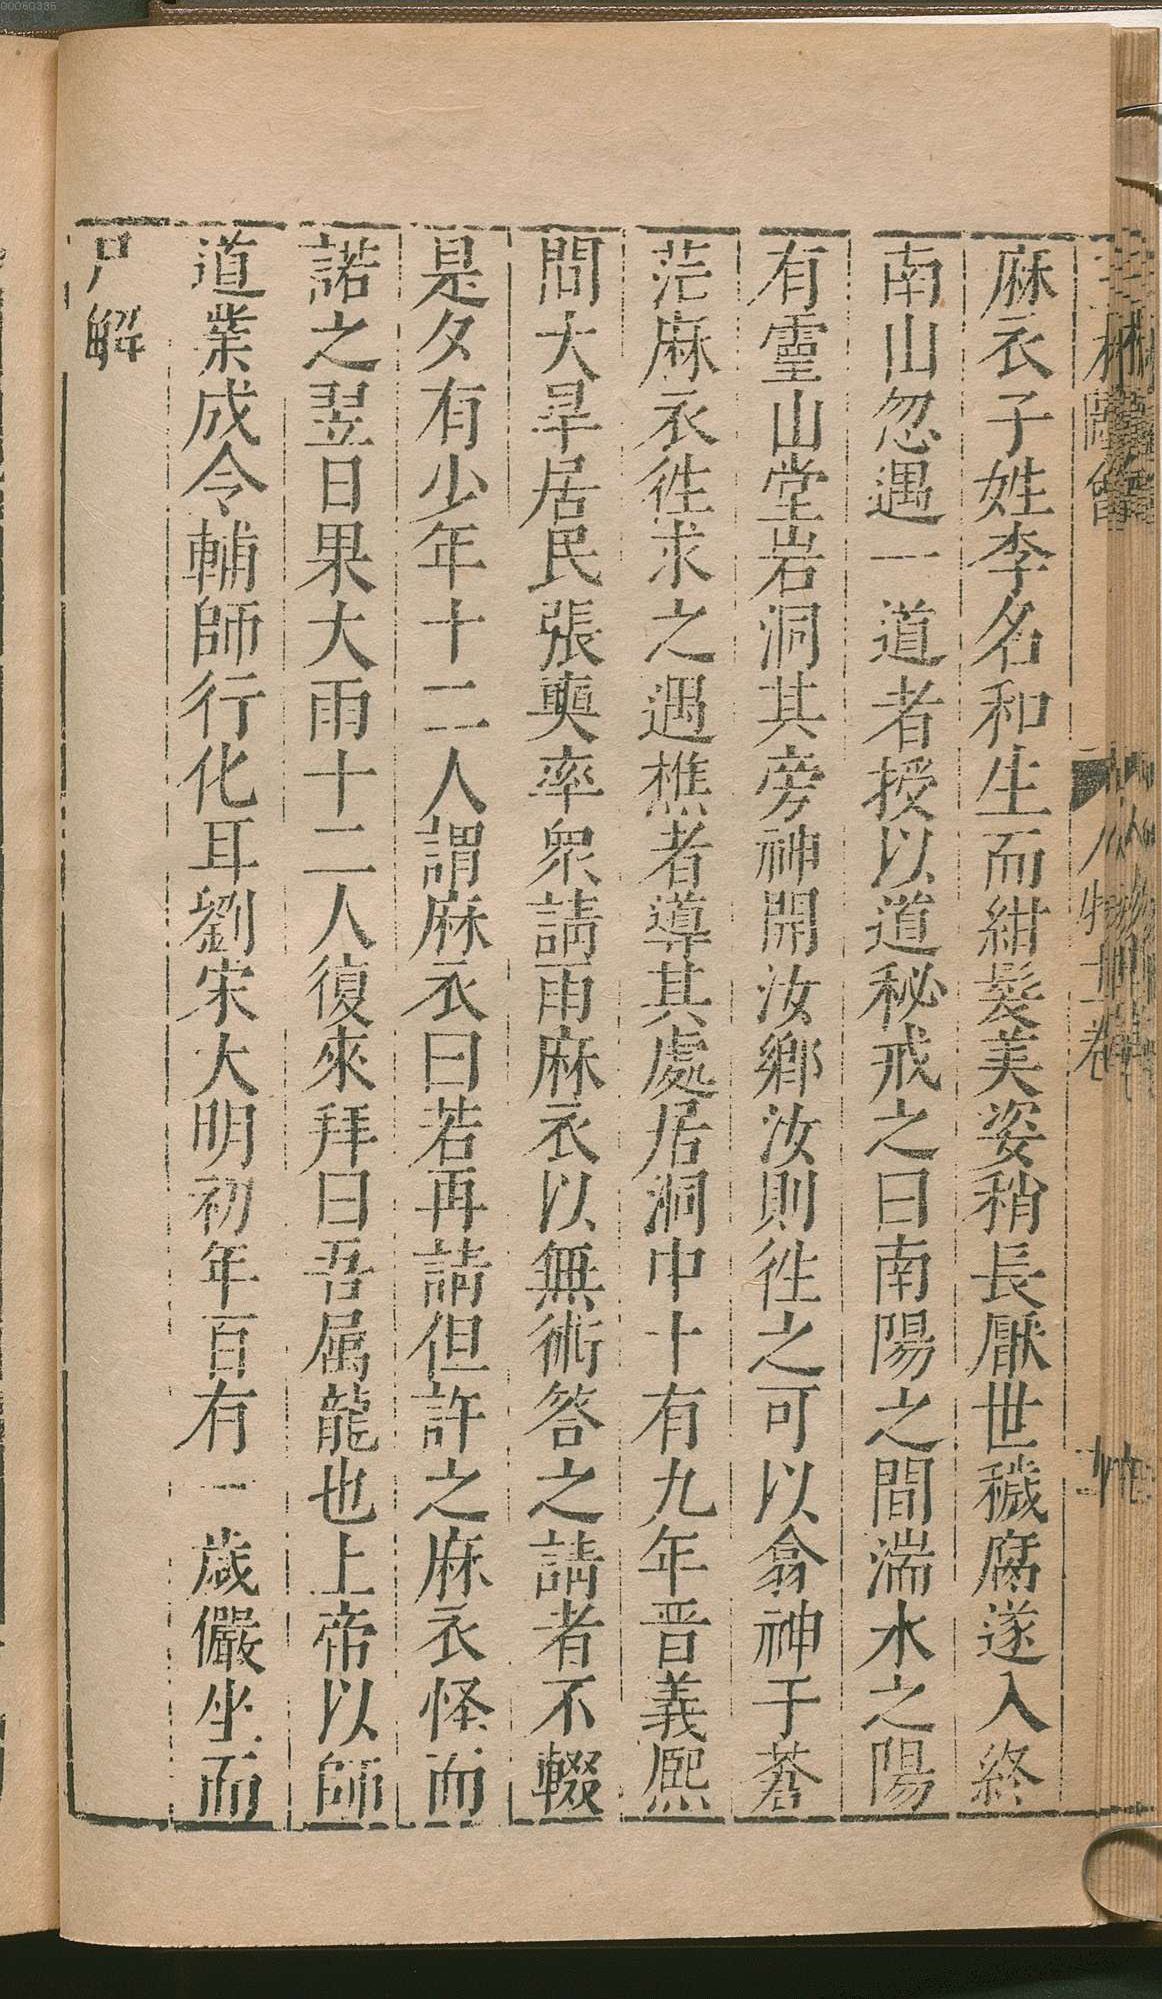 麻衣子姓李名和生而紺髮美姿稍長厭世穢腐遂入終
南山忽遇一道者授以道秘戒之曰南陽之間湍水之陽
有靈山堂岩洞其旁神開汝鄉汝則徃之可以翕神于蒼
茫麻衣徃求之遇樵者導其處居洞中十有九年晋義熈
間大旱居民張奭率衆請雨麻衣以無術答之請者不輟
是夕有少年十二人謂麻衣曰若再請但許之麻衣怪而
諾之翌日果大雨十二人復來拜曰吾属龍也上帝以師
道業成令輔師行化耳劉宋大明初年百有一歲儼坐而
尸解
00060336